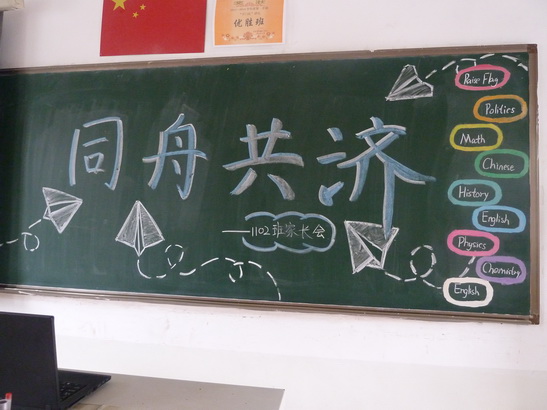 优胜班
同舟共济
——1102班家长会
Raise Flag
Politics
Math
Chinese
History
English
Physics
Chemistry
English